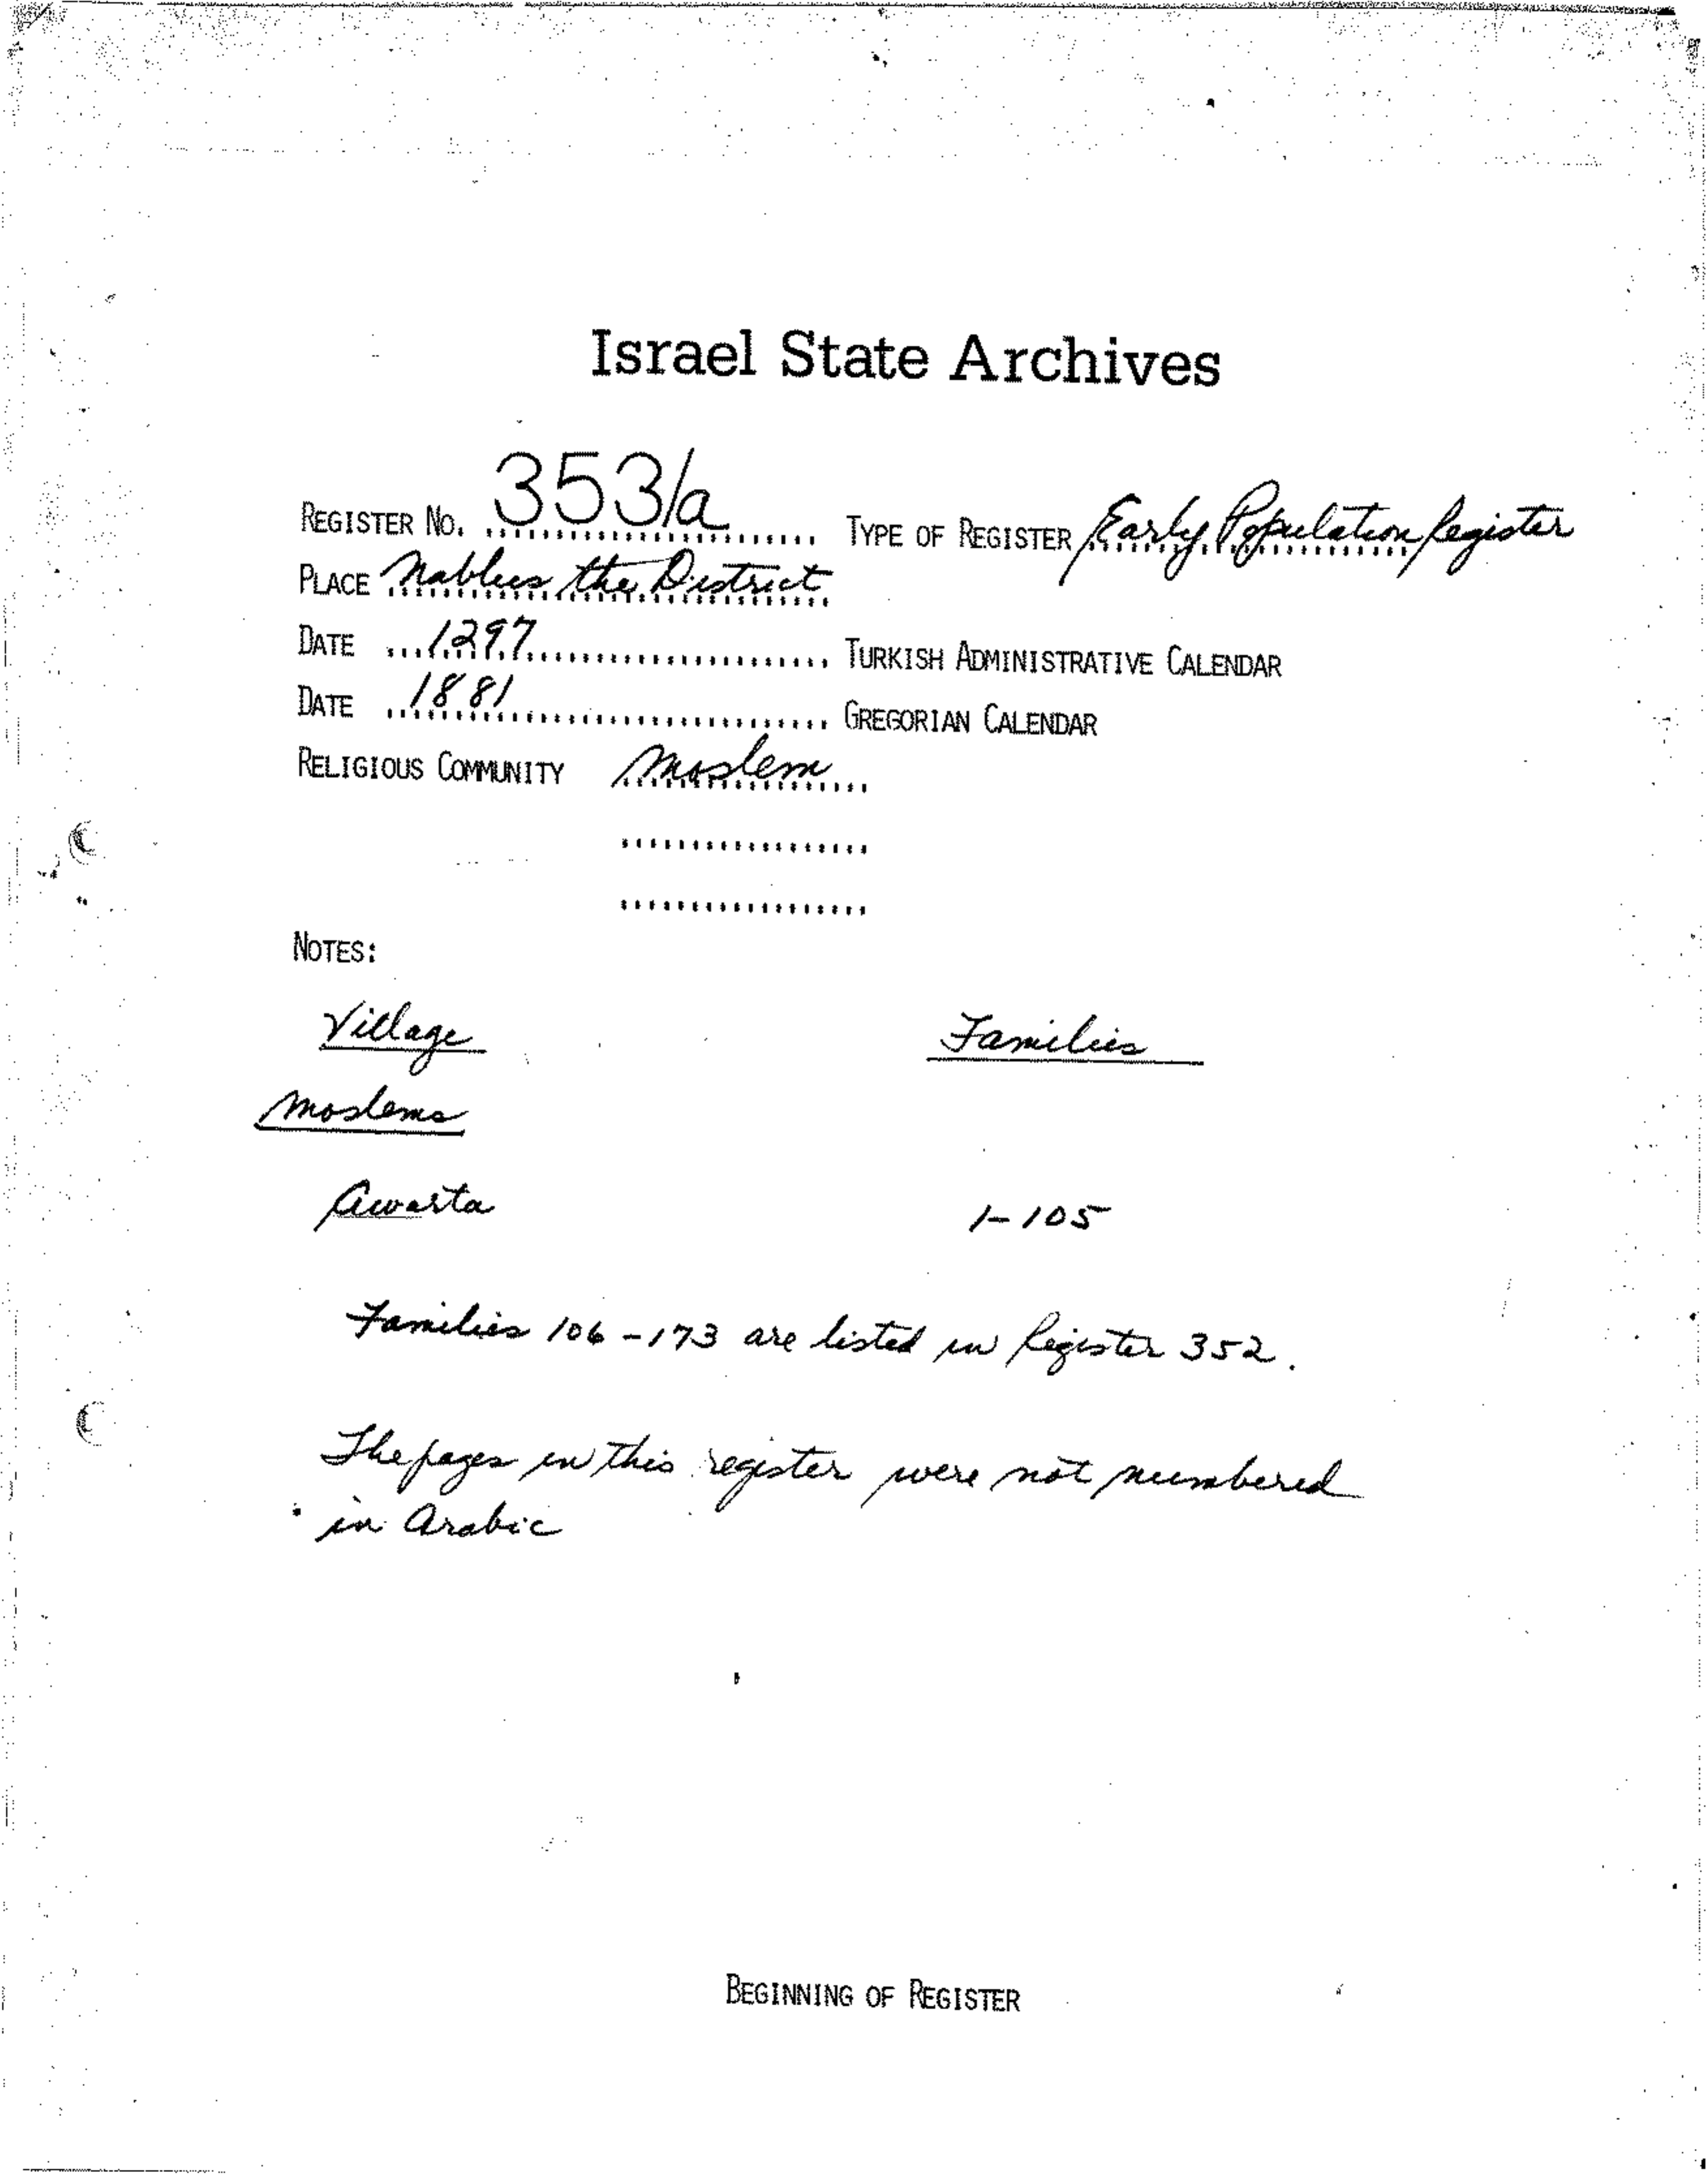 Israel State Archives
REGISTER NO. 353/a TYPE OF REGISTER Early Population Register
PLACE Nablus the District
DATE 1297 TURKISH ADMINISTRATIVE CALENDAR
DATE 1881 GREGORIAN CALENDAR
RELIGIOUS COMMUNITY Moslem
NOTES:
Village Families
Moslems
Awarta 1-105
Families 106-173 are listed in Register 352.
The pages in this register were not numbered
in Arabic
BEGINNING OF REGISTER